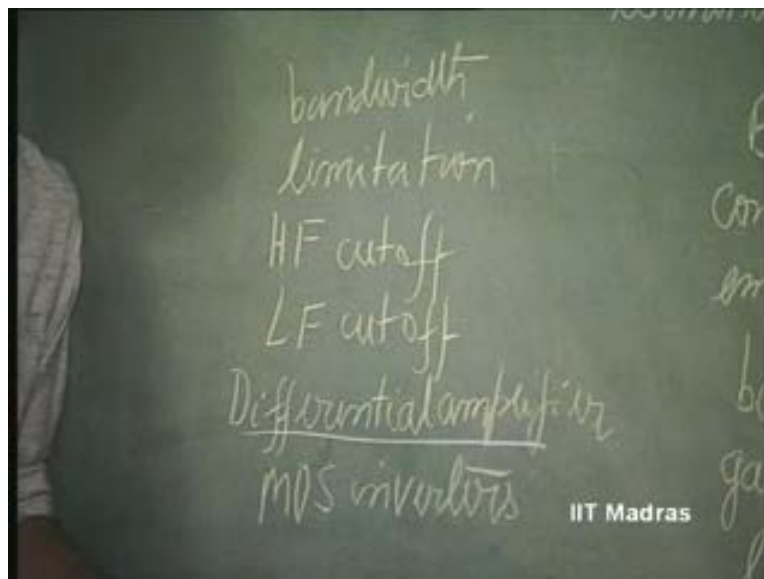 bandwidth
limitation
HF cutoff
LF cutoff
Differential amplifier
MOS invertors
con
em
ga
IIT Madras